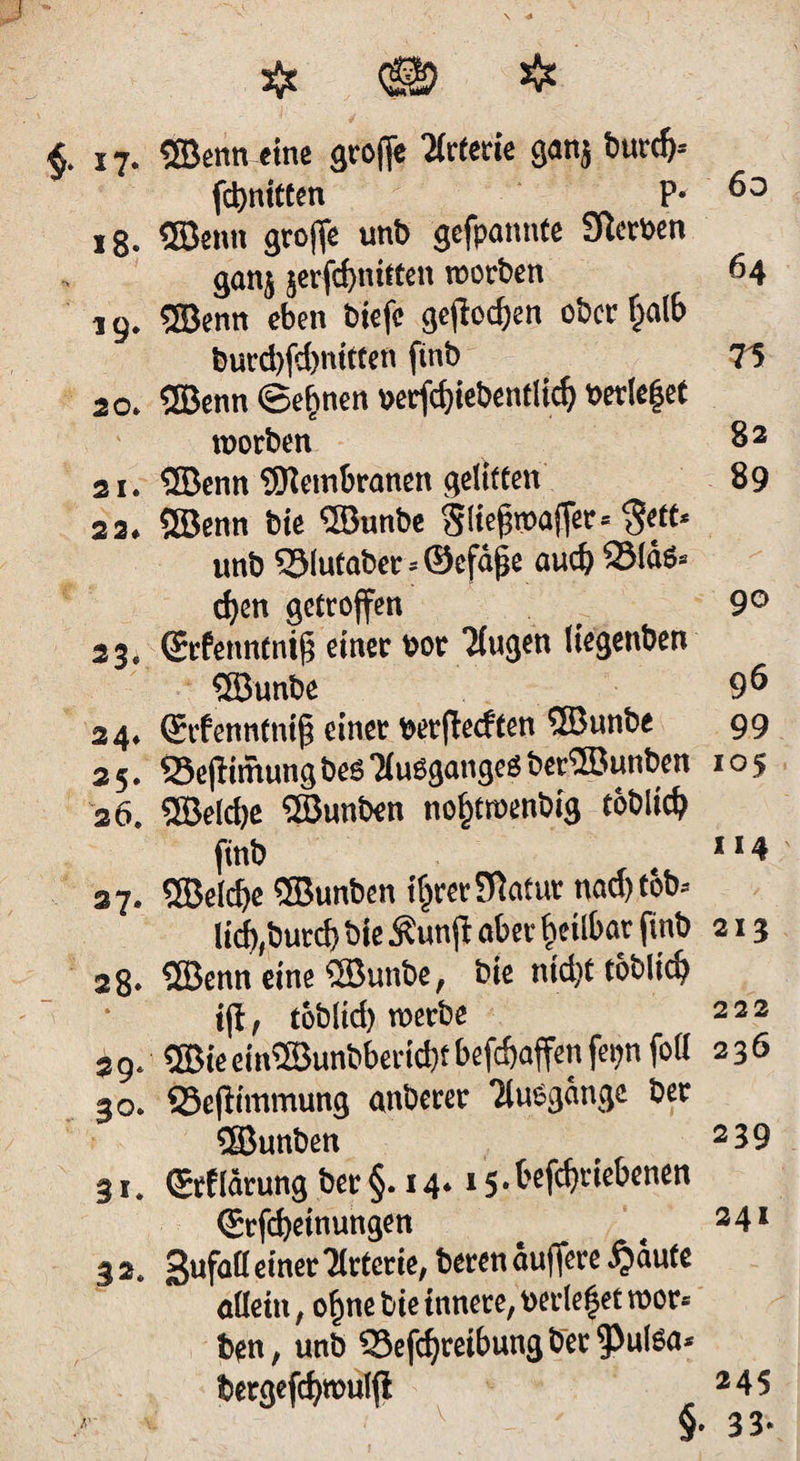 §. 17. Wenn eine grosse Arterie ganz durch=
schnitten p. 60
18. Wenn grosse und gespannte Nerven
ganz zerschnitten worden 64
19. Wenn eben diese gestochen oder halb
durchschnitten sind 75
20. Wenn Sehnen verschiedentlich verletzet
worden 82
21. Wenn Membranen gelitten 89
22. Wenn die Wunde Fließwasser= Fett=
und Blutader=Gefäße auch Bläs=
chen getroffen 90
23. Erkenntniß einer vor Augen liegenden
Wunde 96
24. Erkenntniß einer versteckten Wunde 99
25. Bestimmung des Ausganges der Wunden 105
26. Welche Wunden nohtwendig tödlich
sind 114
27. Welche Wunden ihrer Natur nach töd=
lich, durch die Kunst aber heilbar sind 213
28. Wenn eine Wunde, die nicht tödlich
ist, tödlich werde 222
29. Wie ein Wundbericht beschaffen seyn soll 236
30. Bestimmung anderer Ausgänge der
Wunden 239
31. Erklärung der §. 14. 15. beschriebenen
Erscheinungen 241
32. Zufall einer Arterie, deren äussere Häute
allein, ohne die innere, verletzet wor=
den, und Beschreibung der Pulsa=
dergeschwulst 245
§. 33.